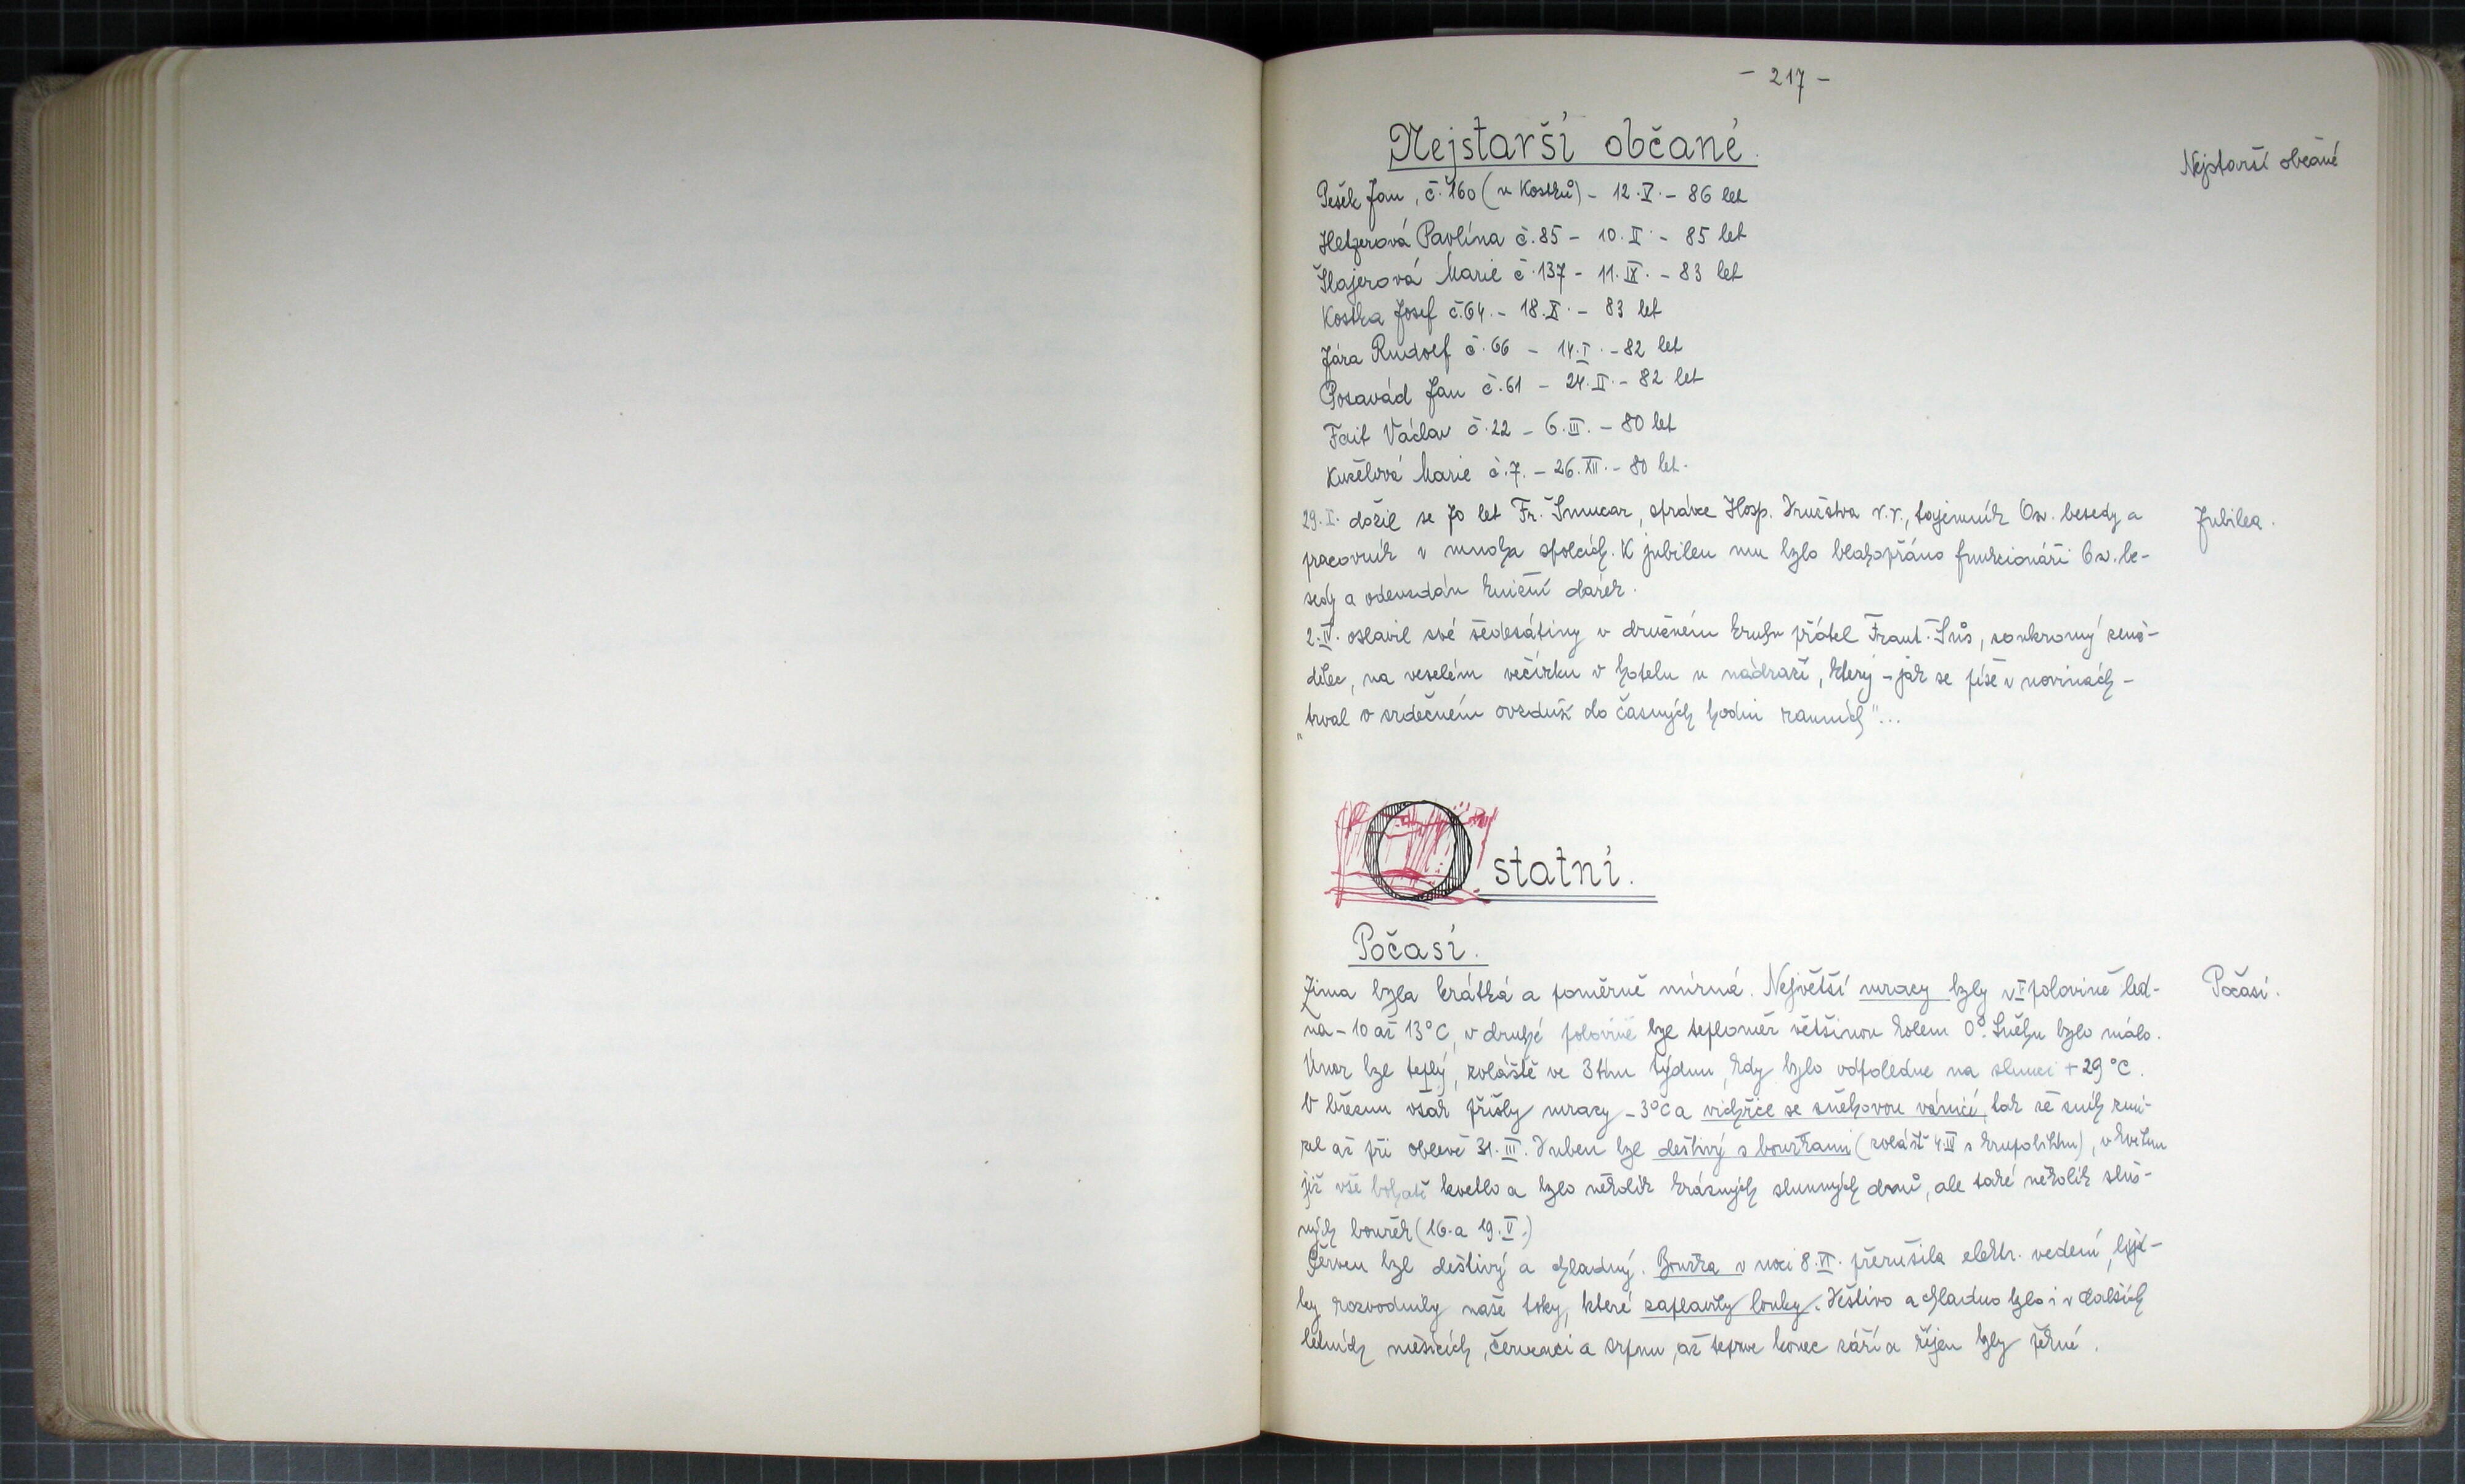 - 217 -
Nejstarší občané.
Nejstarší občané
Pešek Jan, č. 160 (u Kostků) - 12.V. - 86 let
Hetzerová Pavlína č. 85 - 10.II. - 85 let
Šlajerová Marie č. 137 - 11.IX. - 83 let
Kostka Josef č. 64. - 18.X. - 83 let
Jára Rudolf č. 66 - 14.I. - 82 let
Posavád Jan č. 61 - 24.II. - 82 let
Fait Václav č. 22 - 6.III. - 80 let
Kuželová Marie č. 7. - 26.XII. - 80 let.
29.I. dožil se 70 let Fr. Šmucar, správce Hosp. družstva v.v., tajemník Osv. besedy a
Jubilea.
pracovník v mnoha spolcích. K jubileu mu bylo blahopřáno funkcionáři Osv. be-
sedy a odevzdán knižní dárek.
2.IV. oslavil své šedesátiny v družném kruhu přátel Frant. Šůs, soukromý země-
dělec, na veselém večírku v hotelu u nádraží, který - jak se píše v novinách -
„trval v srdečném ovzduší do časných hodin ranních"...
Ostatní.
Počasí.
Zima byla krátká a poměrně mírná. Největší mrazy byly v I polovině led-
Počasí.
na - 10 až 13°C, v druhé polovině byl teploměr většinou kolem 0°. Sněhu bylo málo.
Únor byl teplý, zvláště ve 3tím týdnu, kdy bylo odpoledne na slunci +29°C.
V březnu však přišly mrazy - 3°C a vichřice se sněhovou vánicí, tak že sníh zmi-
zel až při oblevě 31.III. Duben byl deštivý s bouřkami (zvlášť 4.IV s krupobitím), v květnu
již vše bohatě kvetlo a bylo několik krásných slunných dnů, ale také několik sluš-
ných bouřek (16. a 19.V.)
Červen byl deštivý a chladný. Bouřka v noci 8.VI. přerušila elektr. vedení, lijá-
ky rozvodnily naše toky, které zaplavily louky. Deštivo a chladno bylo i v dalších
letních měsících, červenci a srpnu, až teprve konec září a říjen byly pěkné.